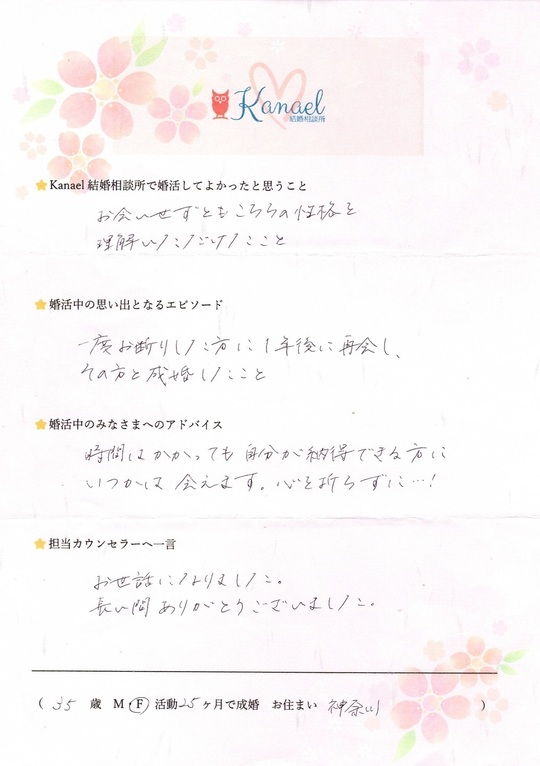 Kanael
結婚相談所
Kanael 結婚相談所で婚活してよかったと思うこと
お会いせずともこちらの性格を
理解いただけたこと
婚活中の思い出となるエピソード
一度お断りした方に1年後に再会し、
その方と成婚したこと
婚活中のみなさまへのアドバイス
時間はかかっても自分が納得できる方に
いつかは会えます。心を折らずに…!
担当カウンセラーへ一言
お世話になりました。
長い間ありがとうございました。
( 35 歳 M・F 活動25ヶ月で成婚 お住まい 神奈川 )